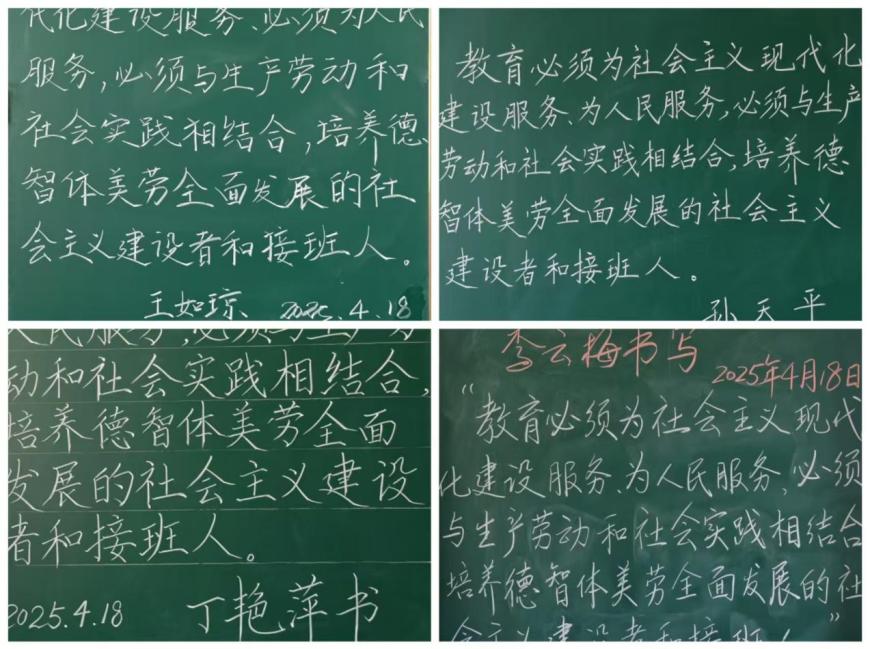 代化建设服务、必须为人民
服务，必须与生产劳动和
社会实践相结合，培养德
智体美劳全面发展的社
会主义建设者和接班人。
王如琼 2025.4.18
教育必须为社会主义现代化
建设服务、为人民服务，必须与生产
劳动和社会实践相结合，培养德
智体美劳全面发展的社会主义
建设者和接班人。
孙天平
人民服务，必须与生产劳
动和社会实践相结合，
培养德智体美劳全面
发展的社会主义建设
者和接班人。
2025.4.18 丁艳萍书
李云梅书写
2025年4月18日
“教育必须为社会主义现代
化建设服务、为人民服务，必须
与生产劳动和社会实践相结合
培养德智体美劳全面发展的社
会主义建设者和接班人”